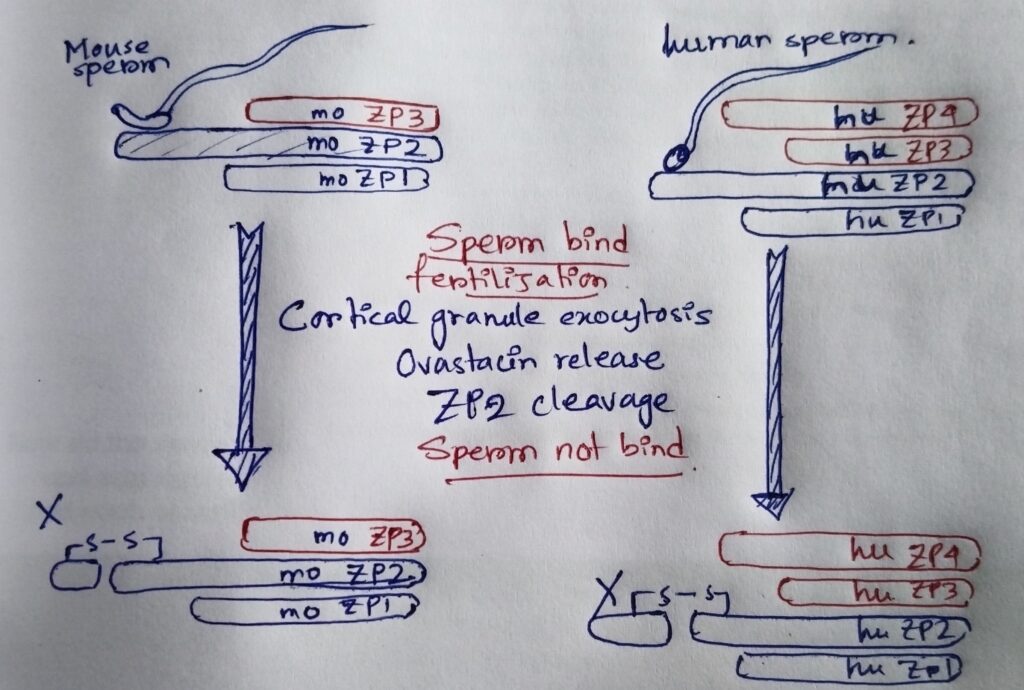 Mouse
sperm
human sperm.
mo ZP3
mo ZP2
mo ZP1
hu ZP4
hu ZP3
hu ZP2
hu ZP1
Sperm bind
fertilisation
Cortical granule exocytosis
Ovastacin release
ZP2 cleavage
Sperm not bind
X
S-S
mo ZP3
mo ZP2
mo ZP1
X
S-S
hu ZP4
hu ZP3
hu ZP2
hu Zp1